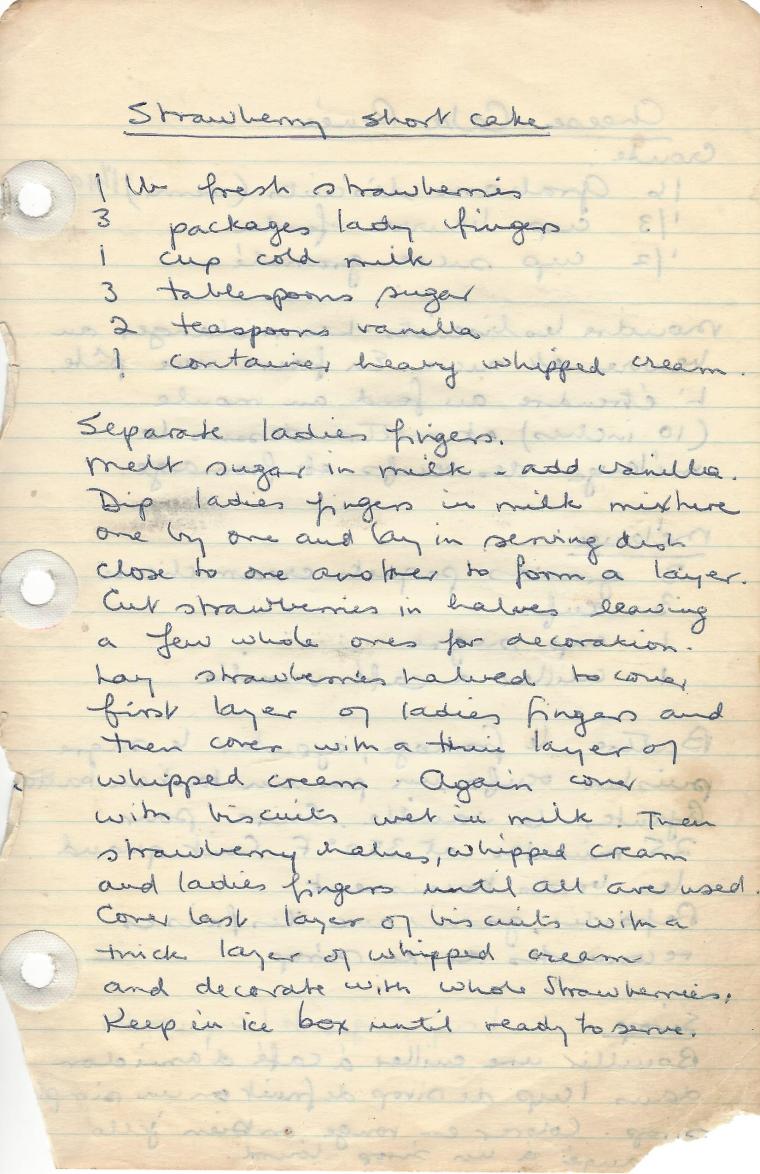 Strawberry short cake
1 lb fresh strawberries
3 packages lady fingers
1 cup cold milk
3 tablespoons sugar
2 teaspoons vanilla
1 container heavy whipped cream.
Separate ladies fingers.
Melt sugar in milk - add vanilla.
Dip ladies fingers in milk mixture
one by one and lay in serving dish
close to one another to form a layer.
Cut strawberries in halves leaving
a few whole ones for decoration.
Lay strawberries halved to cover
first layer of ladies fingers and
then cover with a thin layer of
whipped cream. Again cover
with biscuits wet in milk. Then
strawberry halves, whipped cream
and ladies fingers until all are used.
Cover last layer of biscuits with a
thick layer of whipped cream
and decorate with whole strawberries.
Keep in ice box until ready to serve.